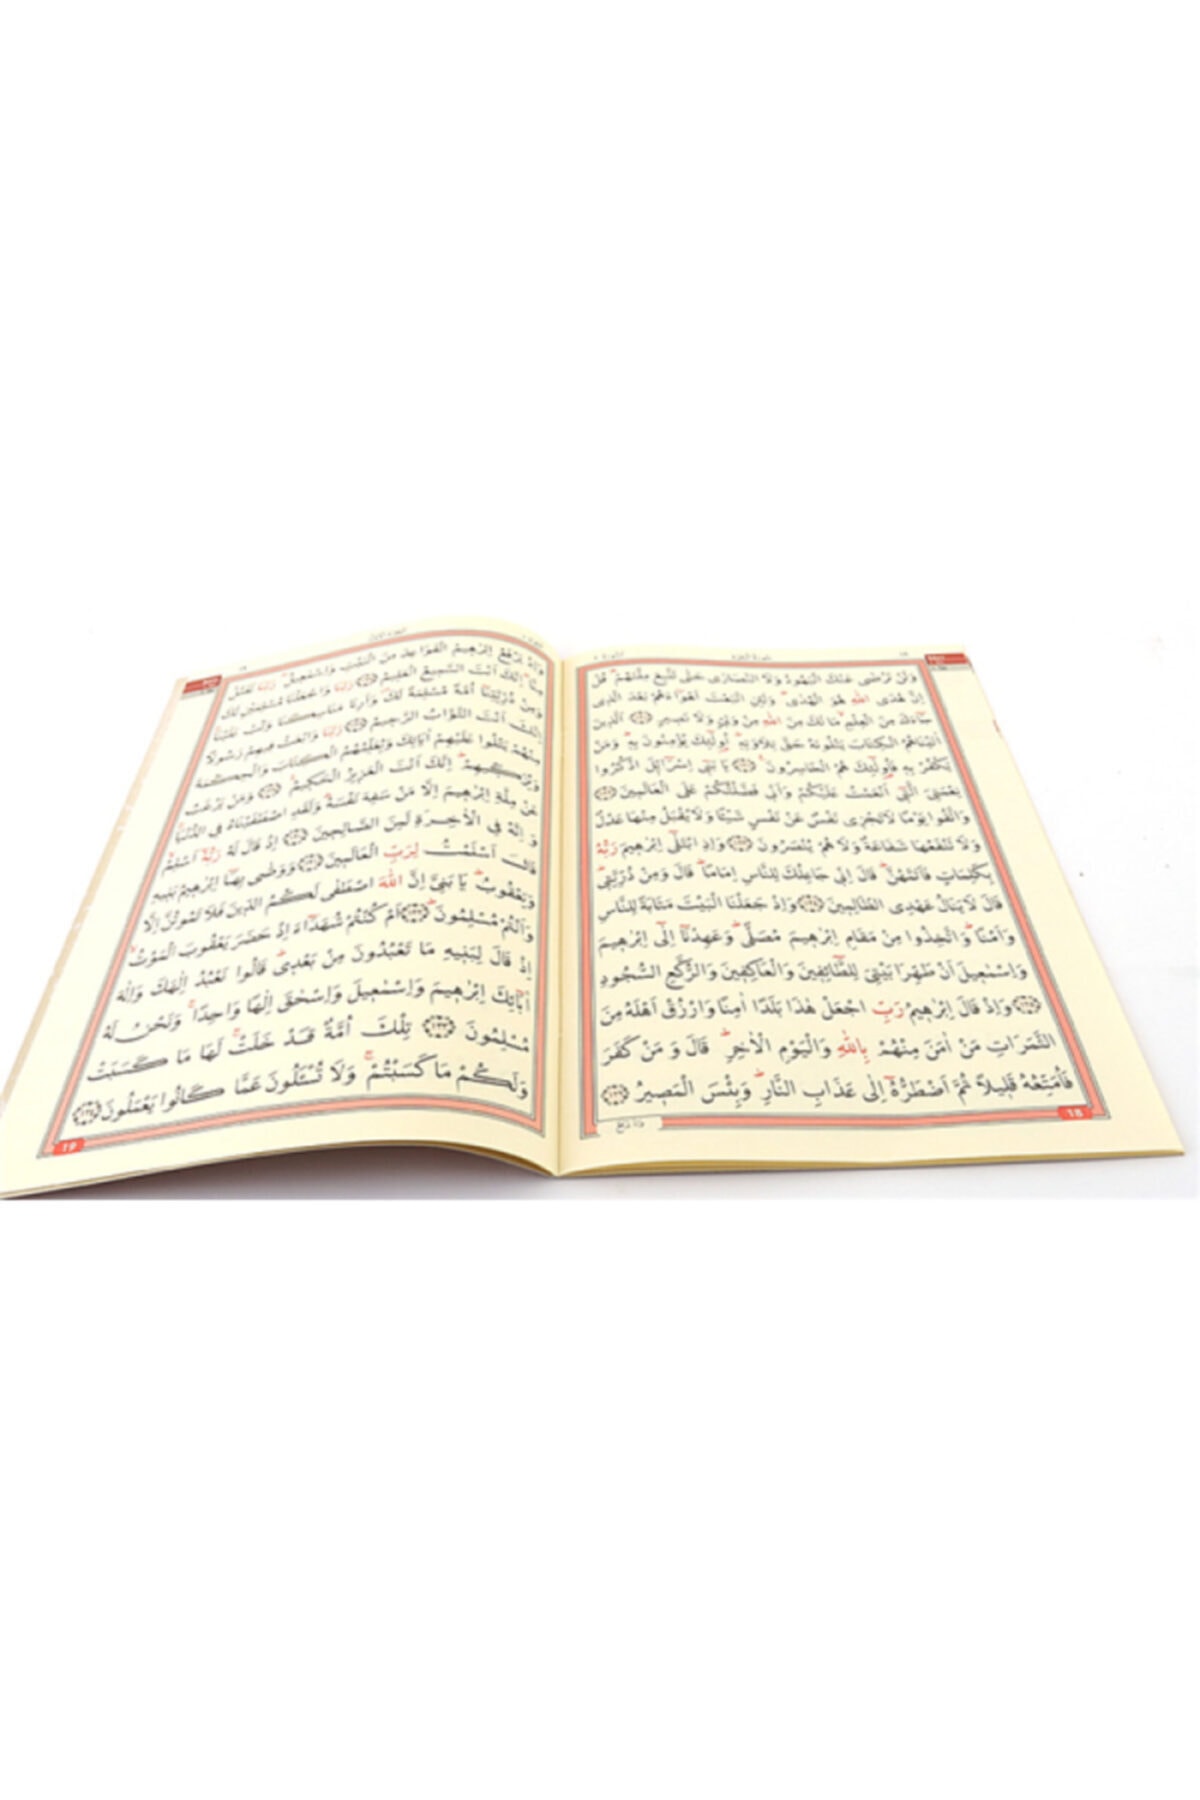 سورة البقرة
وَلَنْ تَرْضٰى عَنْكَ الْيَهُودُ وَلَا النَّصَارٰى حَتّٰى تَتَّبِعَ مِلَّتَهُمْ قُلْ
اِنَّ هُدَى اللّٰهِ هُوَ الْهُدٰى وَلَئِنِ اتَّبَعْتَ اَهْوَٓاءَهُمْ بَعْدَ الَّذِى
جَٓاءَكَ مِنَ الْعِلْمِ مَا لَكَ مِنَ اللّٰهِ مِنْ وَلِىٍّ وَلَا نَصِيرٍ ﴿١٢٠﴾ اَلَّذِينَ
اٰتَيْنَاهُمُ الْكِتَابَ يَتْلُونَهُ حَقَّ تِلَاوَتِهِ اُولٰٓئِكَ يُؤْمِنُونَ بِهِ وَمَنْ
يَكْفُرْ بِهِ فَاُولٰٓئِكَ هُمُ الْخَاسِرُونَ ﴿١٢١﴾ يَا بَنِٓى اِسْرَٓائِلَ اذْكُرُوا
نِعْمَتِىَ الَّتِٓى اَنْعَمْتُ عَلَيْكُمْ وَاَنِّى فَضَّلْتُكُمْ عَلَى الْعَالَمِينَ ﴿١٢٢﴾
وَاتَّقُوا يَوْمًا لَا تَجْزِى نَفْسٌ عَنْ نَفْسٍ شَيْئًا وَلَا يُقْبَلُ مِنْهَا عَدْلٌ
وَلَا تَنْفَعُهَا شَفَاعَةٌ وَلَا هُمْ يُنْصَرُونَ ﴿١٢٣﴾ وَاِذِ ابْتَلٰٓى اِبْرٰهِيمَ رَبُّهُ
بِكَلِمَاتٍ فَاَتَمَّهُنَّ قَالَ اِنِّى جَاعِلُكَ لِلنَّاسِ اِمَامًا قَالَ وَمِنْ ذُرِّيَّتِى
قَالَ لَا يَنَالُ عَهْدِى الظَّالِمِينَ ﴿١٢٤﴾ وَاِذْ جَعَلْنَا الْبَيْتَ مَثَابَةً لِلنَّاسِ
وَاَمْنًا وَاتَّخِذُوا مِنْ مَقَامِ اِبْرٰهِيمَ مُصَلًّى وَعَهِدْنَٓا اِلٰٓى اِبْرٰهِيمَ
وَاِسْمٰعِيلَ اَنْ طَهِّرَا بَيْتِىَ لِلطَّٓائِفِينَ وَالْعَاكِفِينَ وَالرُّكَّعِ السُّجُودِ
﴿١٢٥﴾ وَاِذْ قَالَ اِبْرٰهِيمُ رَبِّ اجْعَلْ هٰذَا بَلَدًا اٰمِنًا وَارْزُقْ اَهْلَهُ مِنَ
الثَّمَرَاتِ مَنْ اٰمَنَ مِنْهُمْ بِاللّٰهِ وَالْيَوْمِ الْاٰخِرِ قَالَ وَمَنْ كَفَرَ
فَاُمَتِّعُهُ قَلِيلًا ثُمَّ اَضْطَرُّهُٓ اِلٰى عَذَابِ النَّارِ وَبِئْسَ الْمَصِيرُ ﴿١٢٦﴾
18
وَاِذْ يَرْفَعُ اِبْرٰهِيمُ الْقَوَاعِدَ مِنَ الْبَيْتِ وَاِسْمٰعِيلُ رَبَّنَا تَقَبَّلْ
مِنَّا اِنَّكَ اَنْتَ السَّمِيعُ الْعَلِيمُ ﴿١٢٧﴾ رَبَّنَا وَاجْعَلْنَا مُسْلِمَيْنِ لَكَ
وَمِنْ ذُرِّيَّتِنَٓا اُمَّةً مُسْلِمَةً لَكَ وَاَرِنَا مَنَاسِكَنَا وَتُبْ عَلَيْنَا
اِنَّكَ اَنْتَ التَّوَّابُ الرَّحِيمُ ﴿١٢٨﴾ رَبَّنَا وَابْعَثْ فِيهِمْ رَسُولًا
مِنْهُمْ يَتْلُوا عَلَيْهِمْ اٰيَاتِكَ وَيُعَلِّمُهُمُ الْكِتَابَ وَالْحِكْمَةَ
وَيُزَكِّيهِمْ اِنَّكَ اَنْتَ الْعَزِيزُ الْحَكِيمُ ﴿١٢٩﴾ وَمَنْ يَرْغَبُ
عَنْ مِلَّةِ اِبْرٰهِيمَ اِلَّا مَنْ سَفِهَ نَفْسَهُ وَلَقَدِ اصْطَفَيْنَاهُ فِى الدُّنْيَا
وَاِنَّهُ فِى الْاٰخِرَةِ لَمِنَ الصَّالِحِينَ ﴿١٣٠﴾ اِذْ قَالَ لَهُ رَبُّهُٓ اَسْلِمْ
قَالَ اَسْلَمْتُ لِرَبِّ الْعَالَمِينَ ﴿١٣١﴾ وَوَصّٰى بِهَٓا اِبْرٰهِيمُ بَنِيهِ
وَيَعْقُوبُ يَا بَنِىَّ اِنَّ اللّٰهَ اصْطَفٰى لَكُمُ الدِّينَ فَلَا تَمُوتُنَّ اِلَّا
وَاَنْتُمْ مُسْلِمُونَ ﴿١٣٢﴾ اَمْ كُنْتُمْ شُهَدَٓاءَ اِذْ حَضَرَ يَعْقُوبَ الْمَوْتُ
اِذْ قَالَ لِبَنِيهِ مَا تَعْبُدُونَ مِنْ بَعْدِى قَالُوا نَعْبُدُ اِلٰهَكَ وَاِلٰهَ
اٰبَٓائِكَ اِبْرٰهِيمَ وَاِسْمٰعِيلَ وَاِسْحٰقَ اِلٰهًا وَاحِدًا وَنَحْنُ لَهُ
مُسْلِمُونَ ﴿١٣٣﴾ تِلْكَ اُمَّةٌ قَدْ خَلَتْ لَهَا مَا كَسَبَتْ
وَلَكُمْ مَا كَسَبْتُمْ وَلَا تُسْئَلُونَ عَمَّا كَانُوا يَعْمَلُونَ ﴿١٣٤﴾
19